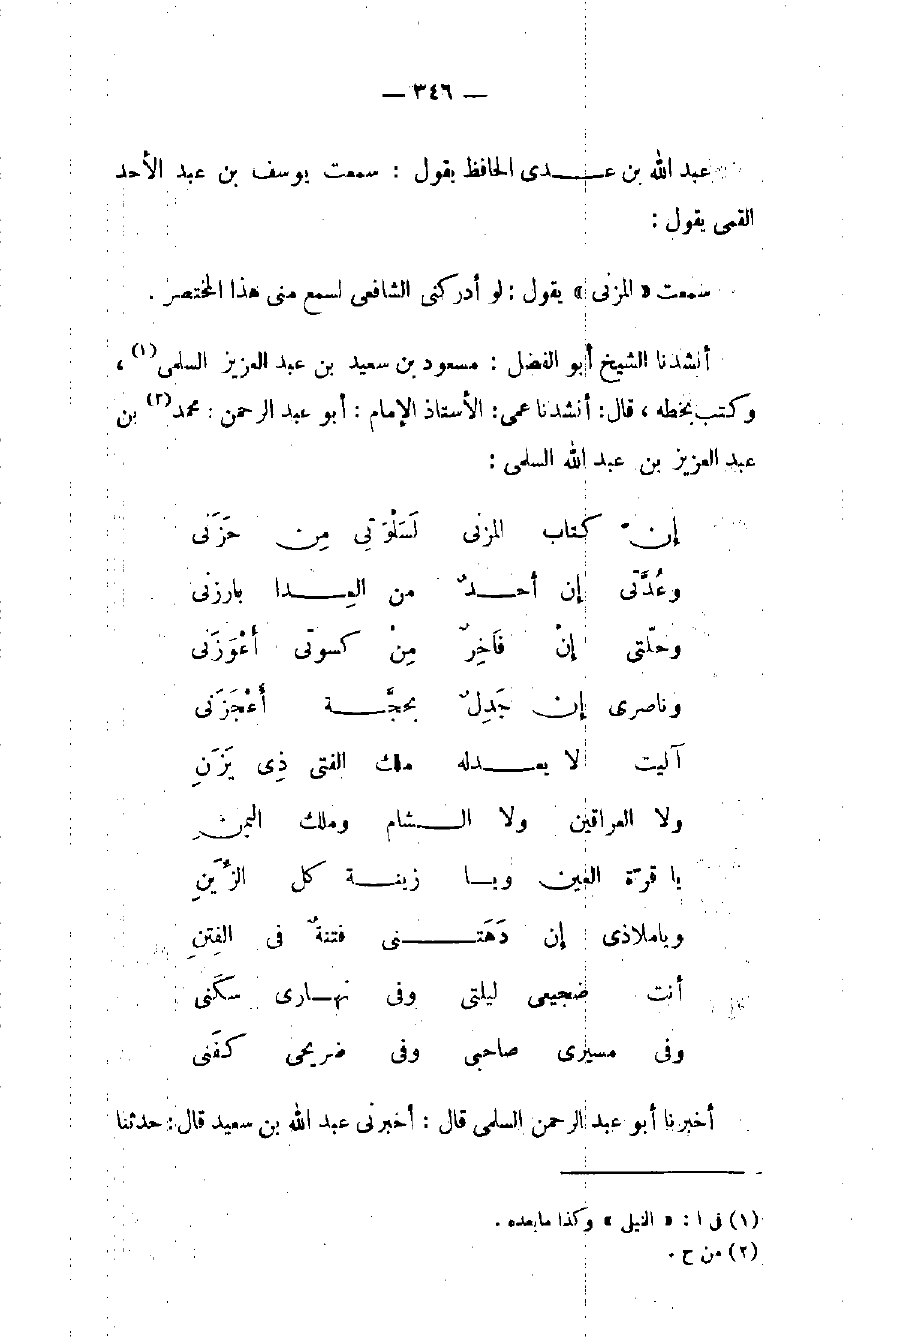 — ٣٤٦ —
عبد الله بن عـــدى الحافظ يقول : سمعت يوسف بن عبد الأحد
القمى يقول :
سمعت « المزنى » يقول : لو أدركنى الشافعى لسمع منى هذا المختصر .
أنشدنا الشيخ أبو الفضل : مسعود بن سعيد بن عبد العزيز السلمى (١) ،
وكتب بخطه ، قال : أنشدنا عمى : الأستاذ الإمام : أبو عبد الرحمن : محمد (٢) بن
عبد العزيز بن عبد الله السلمى :
إن كتاب المزنى لَسَلْوَتِي مِن حَزَنى
وعُدَّتى إن أحـــدٌ من العِـــدا بارزنى
وحلّتى إنْ فَاخِرٌ مِنْ كسوتى أعْوَزَنى
وناصرى إن جَدِلٌ بحجَّـــة أَعْجَزَنى
آليت لا يعـــدله ملك الفتى ذِى يَزَنِ
ولا العراقين ولا الـــشام وملك اليمنِ
يا قرّة العين ويـا زينـــة كل الزَّينِ
وياملاذى إن دَهَتـــنى فتنةٌ فى الفِتَنِ
أنت ضجيعى ليلتى وفى نهـارى سكَنى
وفى مسيرى صاحبى وفى ضريحى كفَنى
أخبرنا أبو عبد الرحمن السلمى قال : أخبرنى عبد الله بن سعيد قال : حدثنا
(١) فى ا : « النيل » وكذا مابعده .
(٢) من ح .